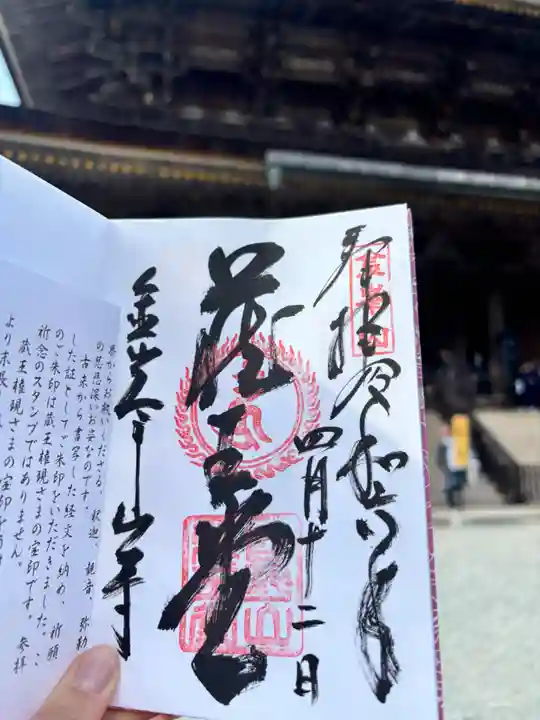 奉拝 令和六年
四月十二日
蔵王堂
金峯山寺
界からお救いくださる、釈迦、観音、弥勒
の慈悲深いお姿なのです。
古来から書写した経文を納め、祈願
した証としてご朱印をいただきました。こ
のご朱印は蔵王権現さまの宝印です。参拝
祈念のスタンプではありません。
蔵王権現さまの宝印を